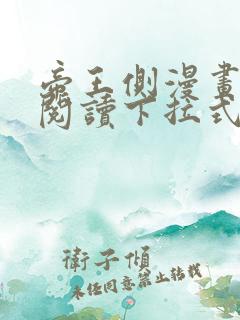 帝王側漫畫
閱讀下拉式
衛子傾
未經同意禁止轉載